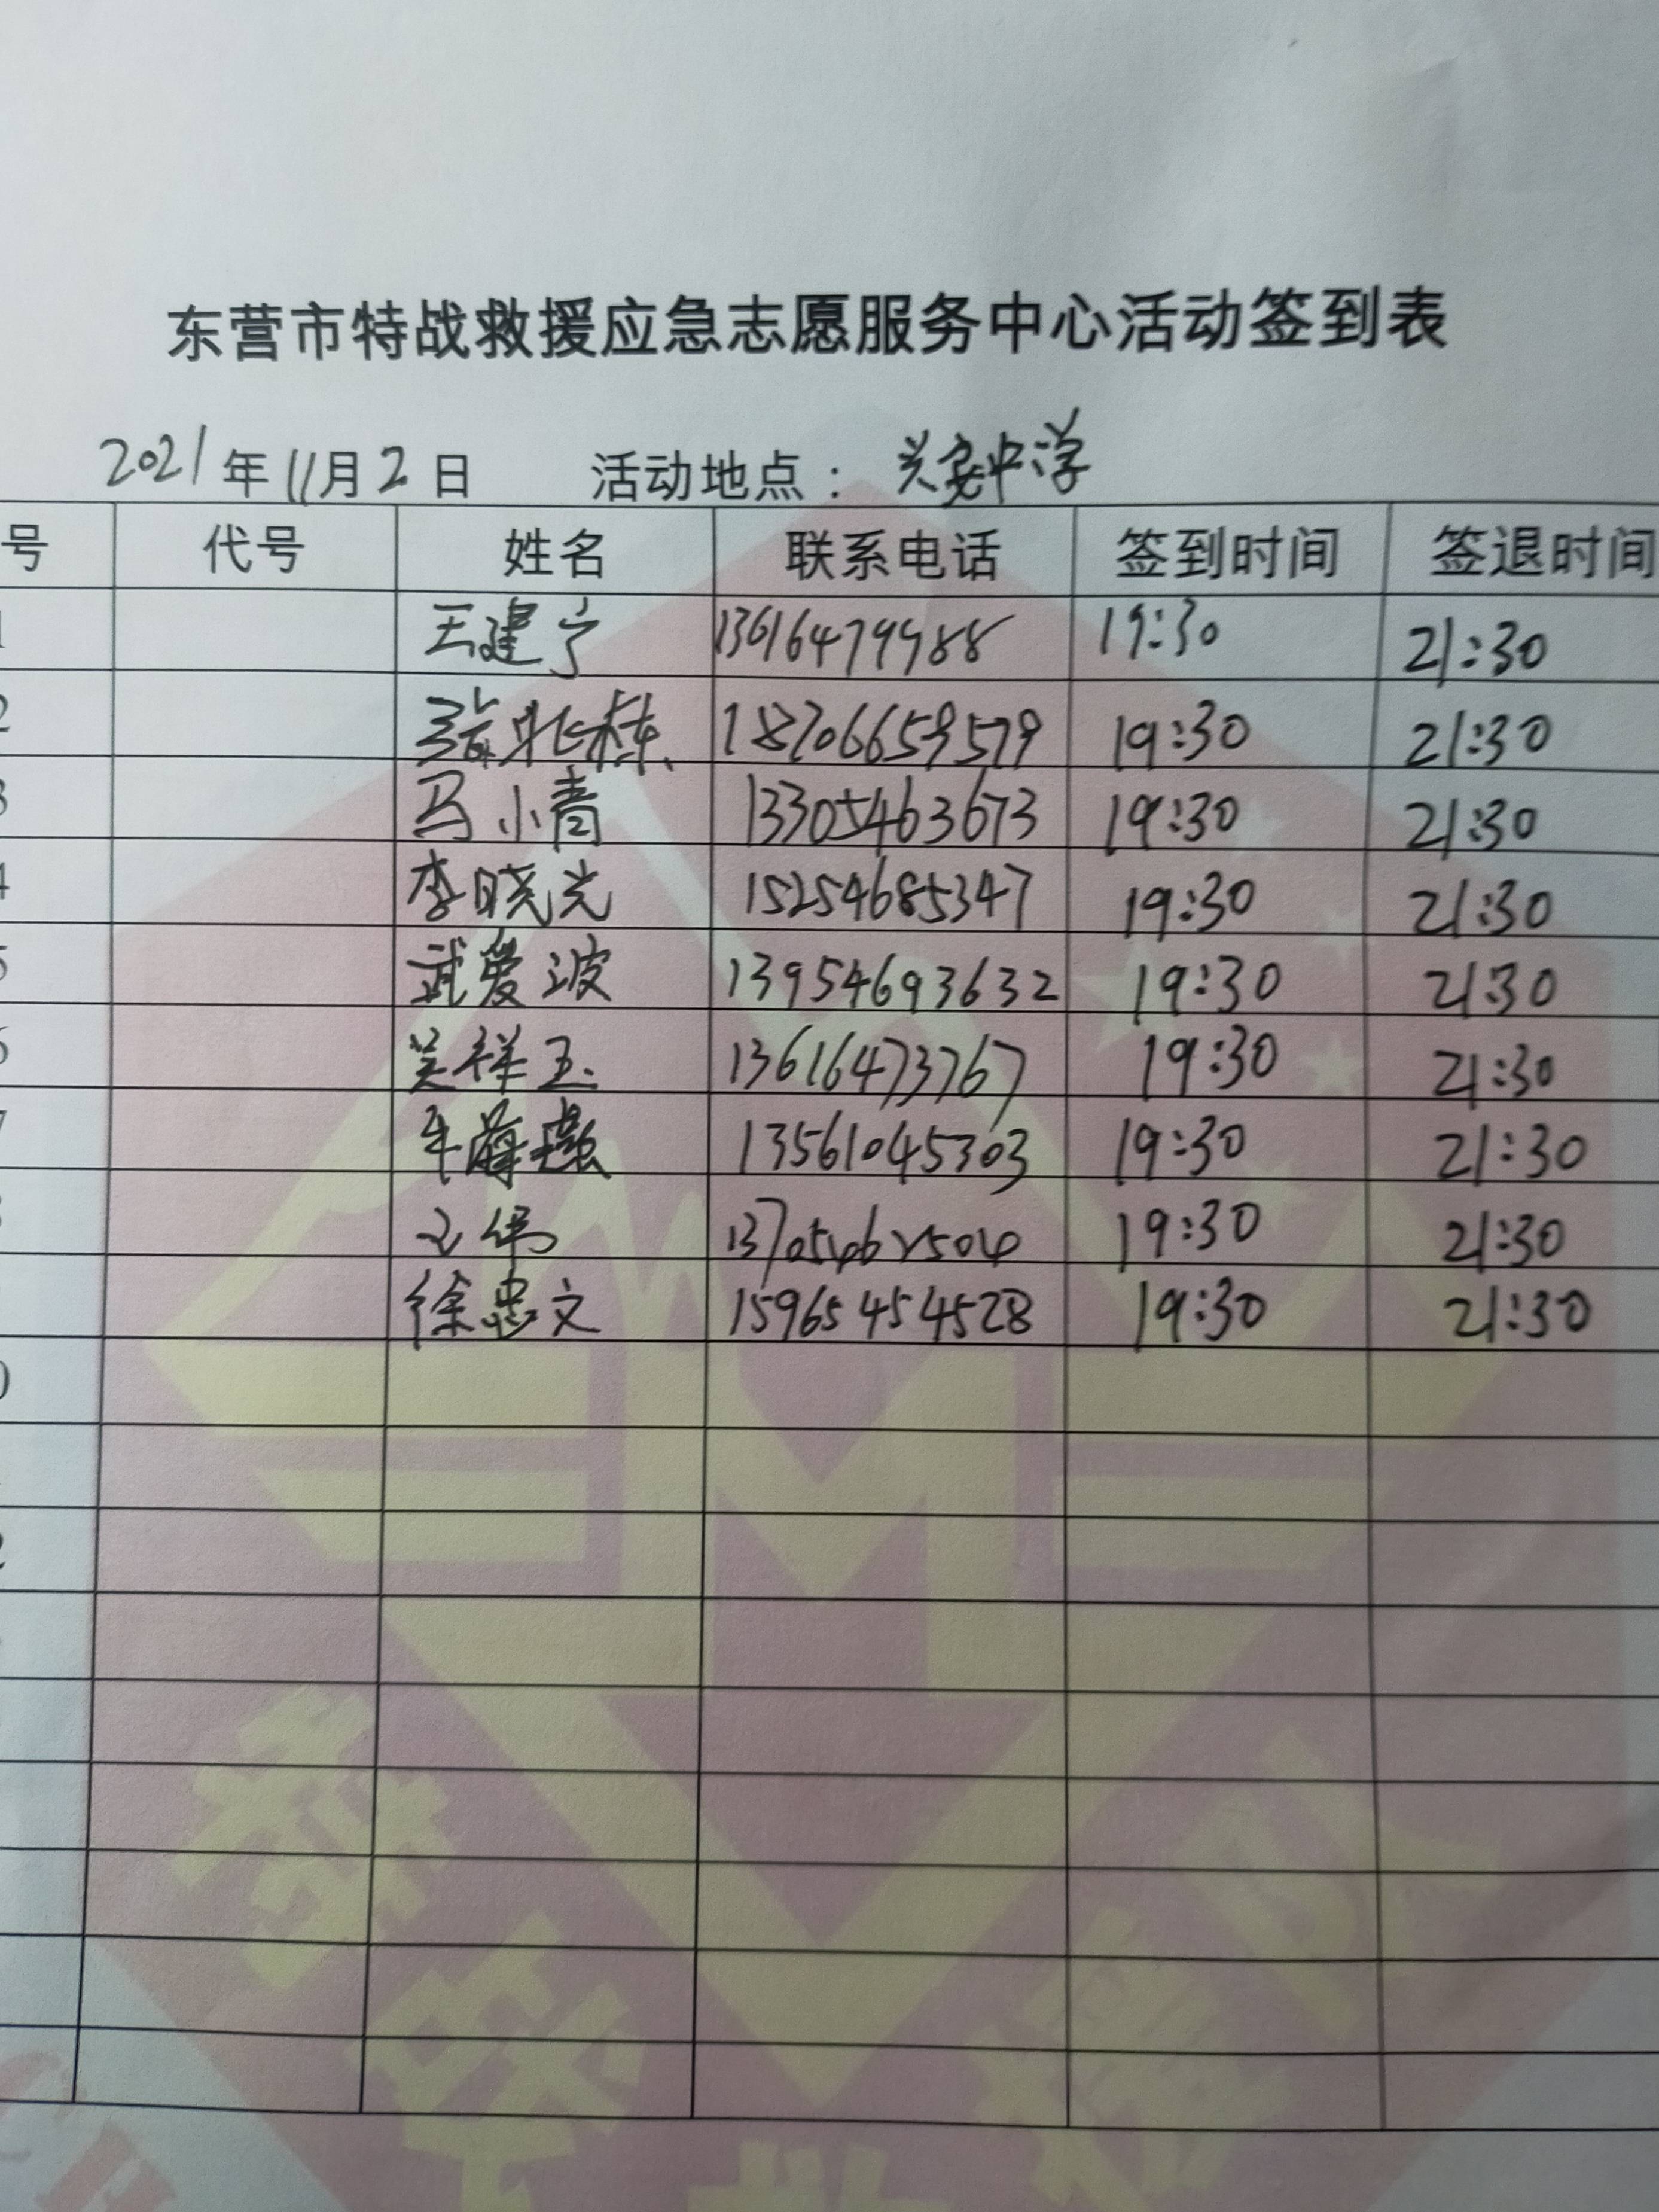 东营市特战救援应急志愿服务中心活动签到表
2021年11月2日 活动地点：兴安中学
号 代号 姓名 联系电话 签到时间 签退时间
1 王建宁 13616479988 19:30 21:30
2 张兆栋 18706659579 19:30 21:30
3 马小青 13305463673 19:30 21:30
4 李晓光 15254685347 19:30 21:30
5 武爱波 13954693632 19:30 21:30
6 吴祥玉 13616473767 19:30 21:30
7 牛 13561045303 19:30 21:30
伟 19:30 21:30
徐忠文 15965454528 19:30 21:30
0
2